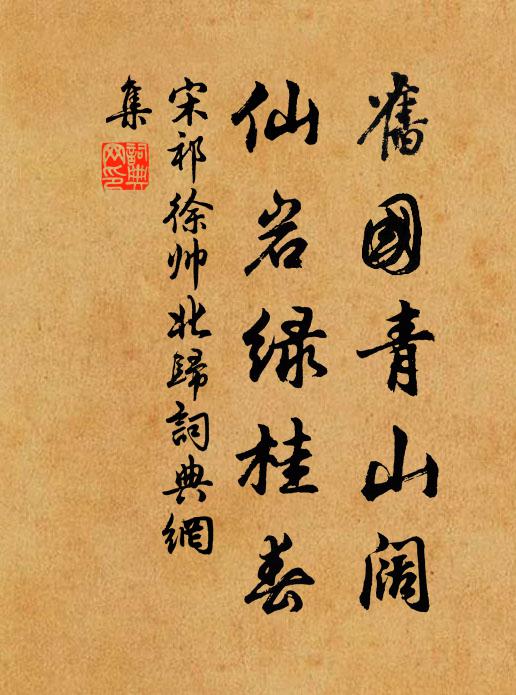 舊國青山闊
仙岩绿桂春
宋祁徐帅北歸詞典網
集
詞典网印